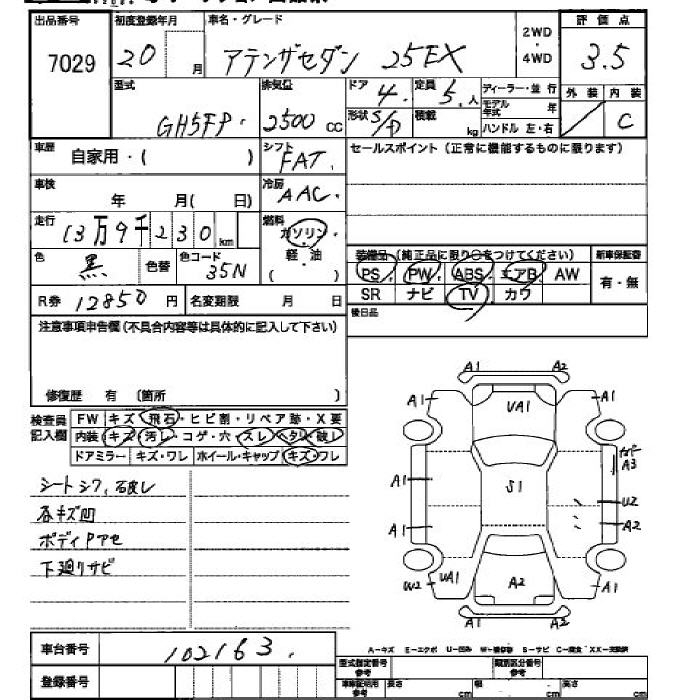 出品番号 初度登録年月 車名・グレード 2WD・4WD 評価点
7029 20 月 アテンザセダン 25EX 3.5
型式 排気量 ドア 定員 ディーラー・並行 外装 内装
GH5FP. 2500 cc 4. 5.人 モデル年式 年 C
形状 S/D 積載 kg ハンドル 左・右
車歴 シフト セールスポイント(正常に機能するものに限ります)
自家用・( ) FAT.
車検 冷房
年 月( 日) AAC.
走行 燃料
13万9千230km ガソリン・
色 黒 色替 色コード 35N 軽・油 ( )
装備品(純正品に限り○をつけてください) 新車保証書
PS PW ABS エアB AW 有・無
SR ナビ TV カワ
R券 12850 円 名変期限 月 日
後日品
注意事項申告欄(不具合内容等は具体的に記入して下さい)
修復歴 有 (箇所 )
検査員記入欄 FW キズ・飛石・ヒビ割・リペア跡・X要
内装 キズ・汚レ・コゲ・穴・スレ・ヘタリ・破レ
ドアミラー キズ・ワレ ホイール・キャップ キズ・ワレ
シートシワ、
各キズ凹
ボディPアセ
下廻りサビ
A1 A2
A1 UA1 A1
A3
A1 S1 U2
A1 A2
W2 UA1 A2 A1
A1 A2
車台番号 102163.
A-キズ E-エクボ U-凹み S-サビ
登録番号
型式指定番号 類別区分番号
長さ cm 幅 cm 高さ cm